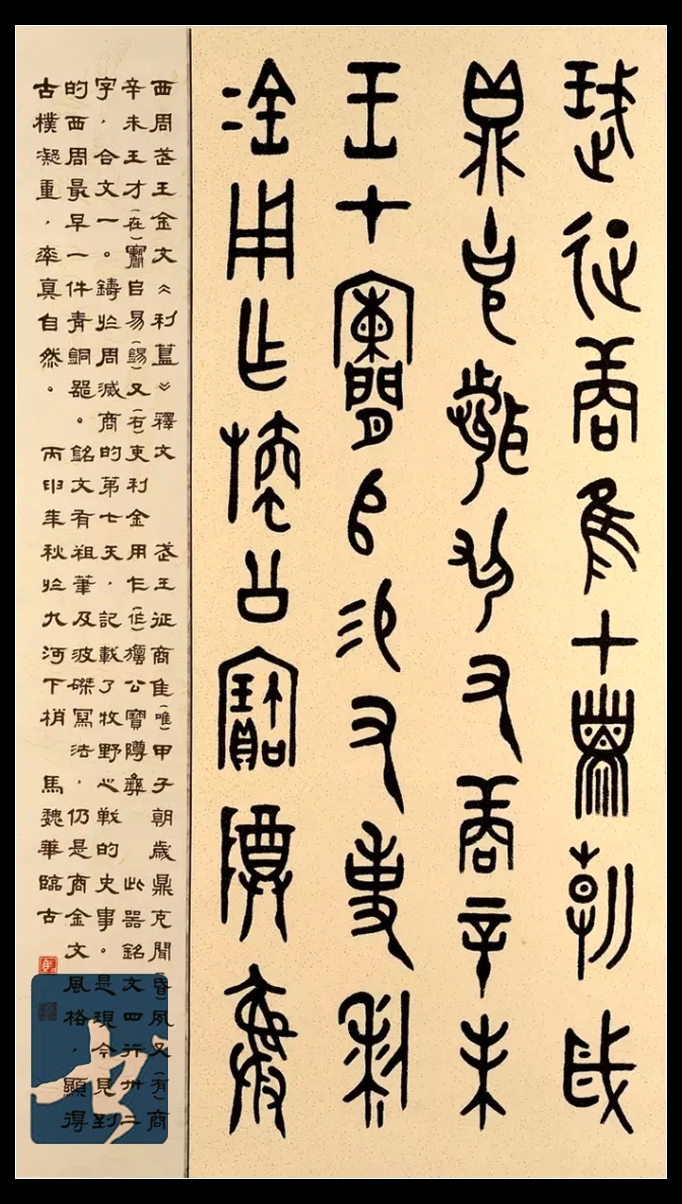 珷征商隹甲子朝歲
鼎克聞夙又商辛未
王才𠂤易又吏利
金用乍公寶尊彝
西周武王金文《利簋》釋文 武王征商隹(唯)甲子朝歲鼎克聞(昏)夙又(有)商
辛未王才(在)𠂤易(錫)又(右)吏利金用乍(作)公寶尊彝 此器銘文四行卅二
字,合文一。鑄於周滅商的第七天,記載了牧野之戰的史事。是現今見到
的西周最早一件青銅器。銘文有祖筆及波磔寫法,仍是商金文風格,顯得
古樸凝重,率真自然。 丙申年秋於九河下梢 馬魏華臨古
书